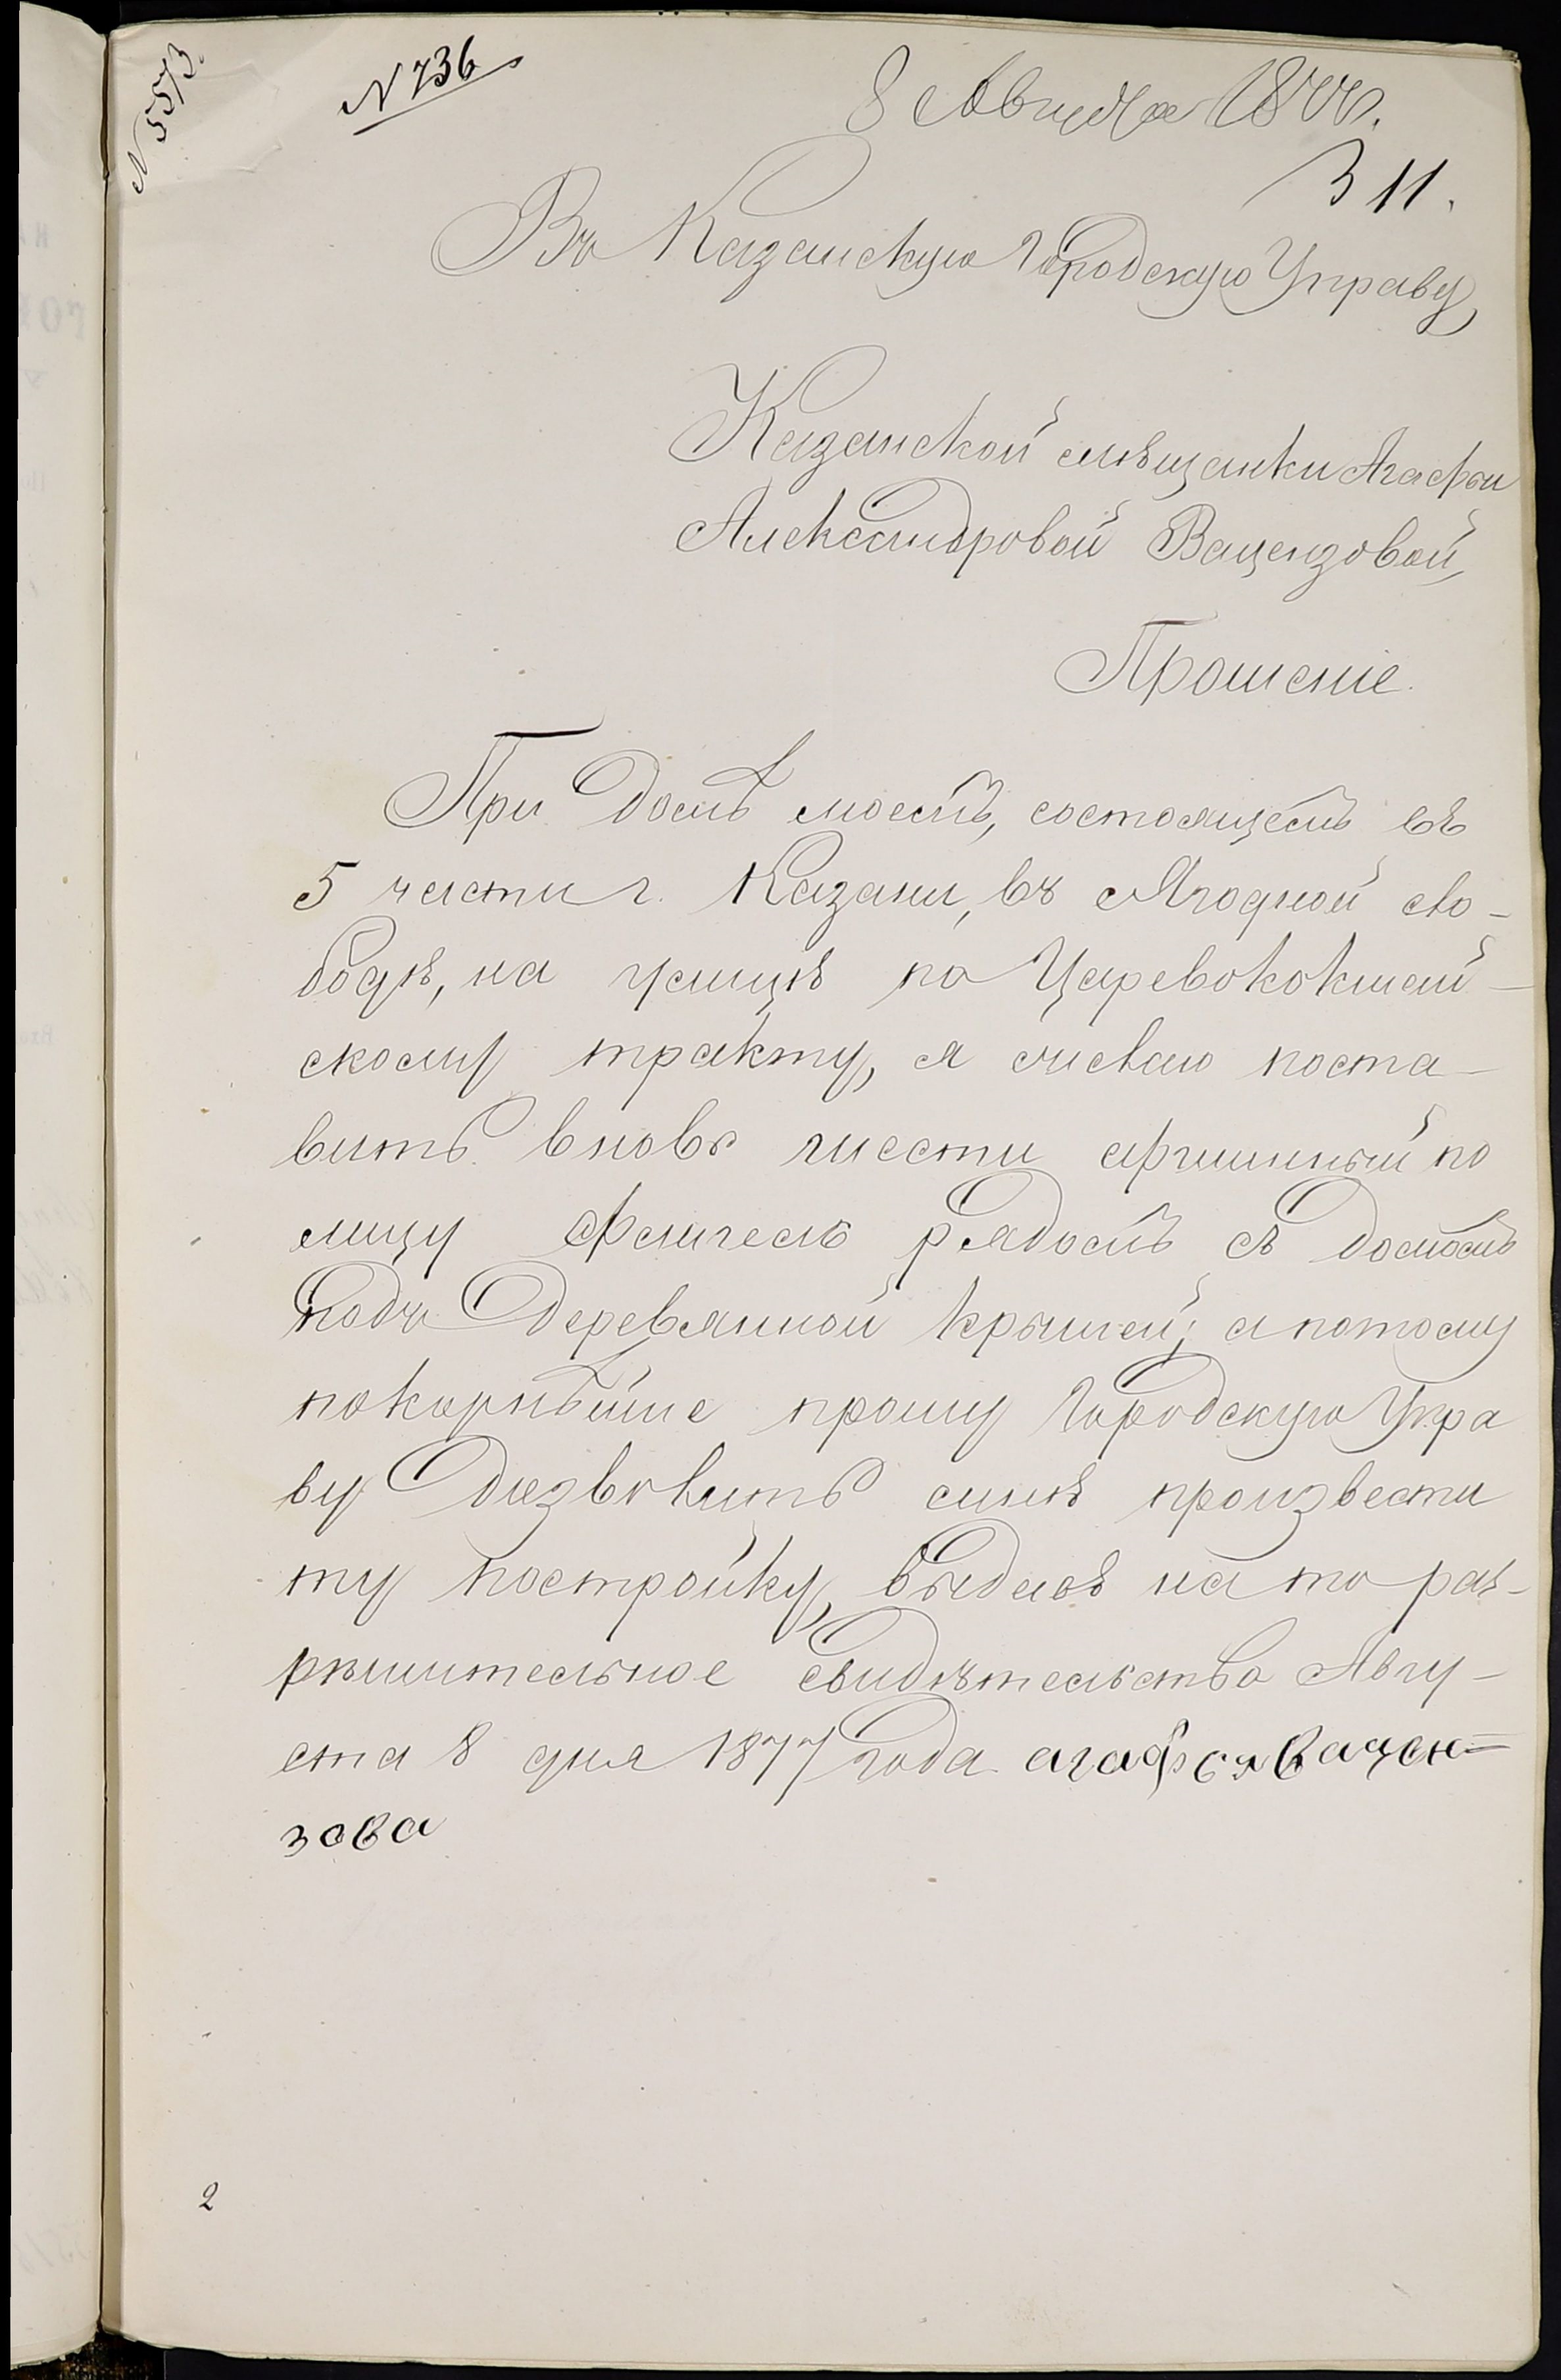 N 5573.
N 736
8 Августа 1877.
311.
Въ Казанскую Городскую Управу,
Казанской мѣщанки Агафьи
Александровой Вацензовой,
Прошеніе.
При домѣ моемъ, состоящемъ въ
5 части г. Казани, въ Ягодной сло-
бодѣ, на улицѣ по Царевококшай-
скому тракту, я желаю поста-
вить вновь шести аршинный по
лицу флигель рядомъ съ домомъ
подъ деревянной крышей; а потому
покорнѣйше прошу Городскую Упра
ву дозволить мнѣ произвести
ту постройку, выдавъ на то раз-
рѣшительное свидѣтельство Авгу-
ста 8 дня 1877 года агафья вацен=
зова
2